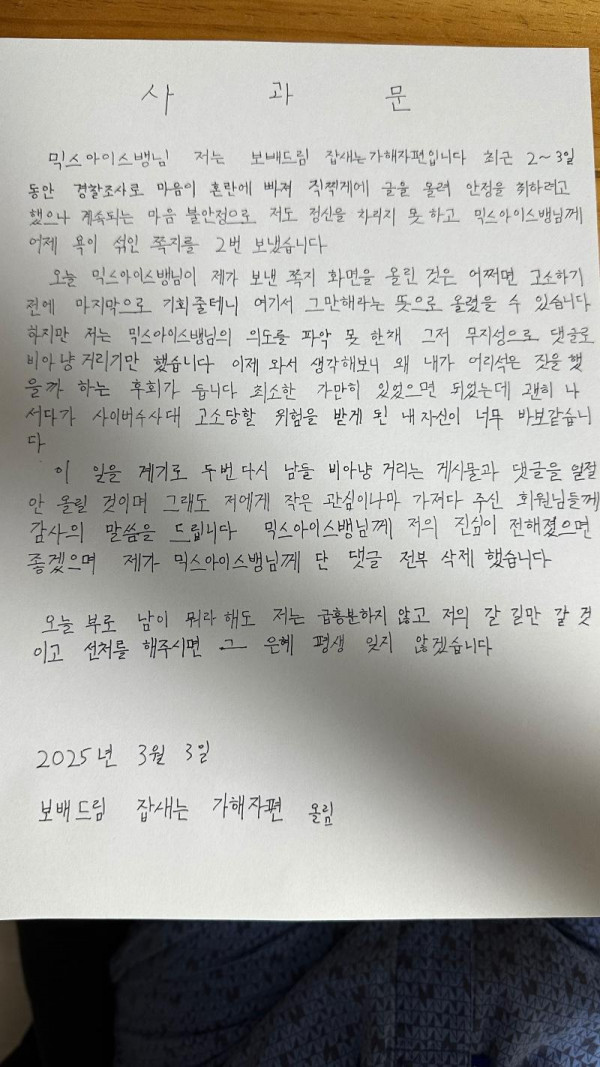 사 과 문
믹스아이스뱅님 저는 보배드림 잡새는가해자편입니다 최근 2~3일
동안 경찰조사로 마음이 혼란에 빠져 직찍게에 글을 올려 안정을 취하려고
했으나 계속되는 마음 불안정으로 저도 정신을 차리지 못 하고 믹스아이스뱅님께
어제 욕이 섞인 쪽지를 2번 보냈습니다
오늘 믹스아이스뱅님이 제가 보낸 쪽지 화면을 올린 것은 어쩌면 고소하기
전에 마지막으로 기회줄테니 여기서 그만해라는 뜻으로 올렸을 수 있습니다
하지만 저는 믹스아이스뱅님의 의도를 파악 못 한채 그저 무지성으로 댓글로
비아냥 거리기만 했습니다 이제 와서 생각해보니 왜 내가 어리석은 짓을 했
을까 하는 후회가 듭니다 최소한 가만히 있었으면 되었는데 괜히 나
서다가 사이버수사대 고소당할 위험을 받게 된 내자신이 너무 바보같습니
다
이 일을 계기로 두번 다시 남들 비아냥 거리는 게시물과 댓글을 일절
안 올릴 것이며 그래도 저에게 작은 관심이나마 가져다 주신 회원님들께
감사의 말씀을 드립니다 믹스아이스뱅님께 저의 진심이 전해졌으면
좋겠으며 제가 믹스아이스뱅님께 단 댓글 전부 삭제 했습니다
오늘 부로 남이 뭐라 해도 저는 급흥분하지 않고 저의 갈 길만 갈 것
이고 선처를 해주시면 그 은혜 평생 잊지 않겠습니다
2025년 3월 3일
보배드림 잡새는 가해자편 올림